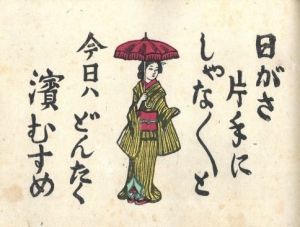 日がさ
片手に
しやな〱と
今日ハ どんたく
濱むすめ